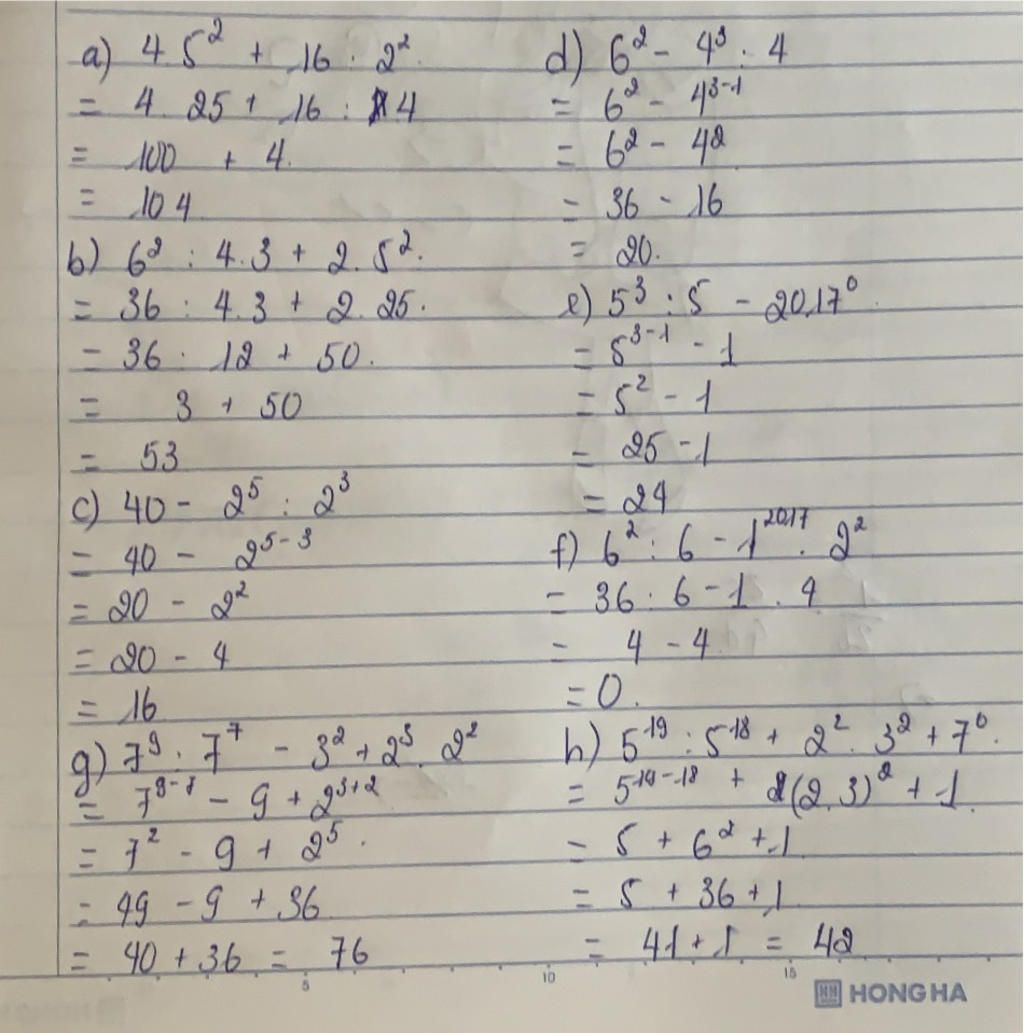 a) 4.5² + 16 : 2².
= 4.25 + 16 : 4
= 100 + 4.
= 104
b) 6² : 4.3 + 2.5².
= 36 : 4.3 + 2.25.
= 36 : 12 + 50.
= 3 + 50
= 53
c) 40 - 2⁵ : 2³
= 40 - 2⁵⁻³
= 20 - 2²
= 20 - 4
= 16
g) 7⁹ : 7⁷ - 3² + 2³ . 2²
= 7⁹⁻⁷ - 9 + 2³⁺²
= 7² - 9 + 2⁵.
= 49 - 9 + 36
= 40 + 36 = 76
d) 6² - 4³ : 4
= 6² - 4³⁻¹
= 6² - 4²
= 36 - 16
= 20.
e) 5³ : 5 - 2017⁰.
= 5³⁻¹ - 1
= 5² - 1
= 25 - 1
= 24
f) 6² : 6 - 1²⁰¹⁷ . 2²
= 36 : 6 - 1 . 4
= 4 - 4
= 0.
h) 5¹⁹ : 5¹⁸ + 2² . 3² + 7⁰.
= 5¹⁹⁻¹⁸ + (2.3)² + 1
= 5 + 6² + 1
= 5 + 36 + 1
= 41 + 1 = 42
5 10 15
HONG HA